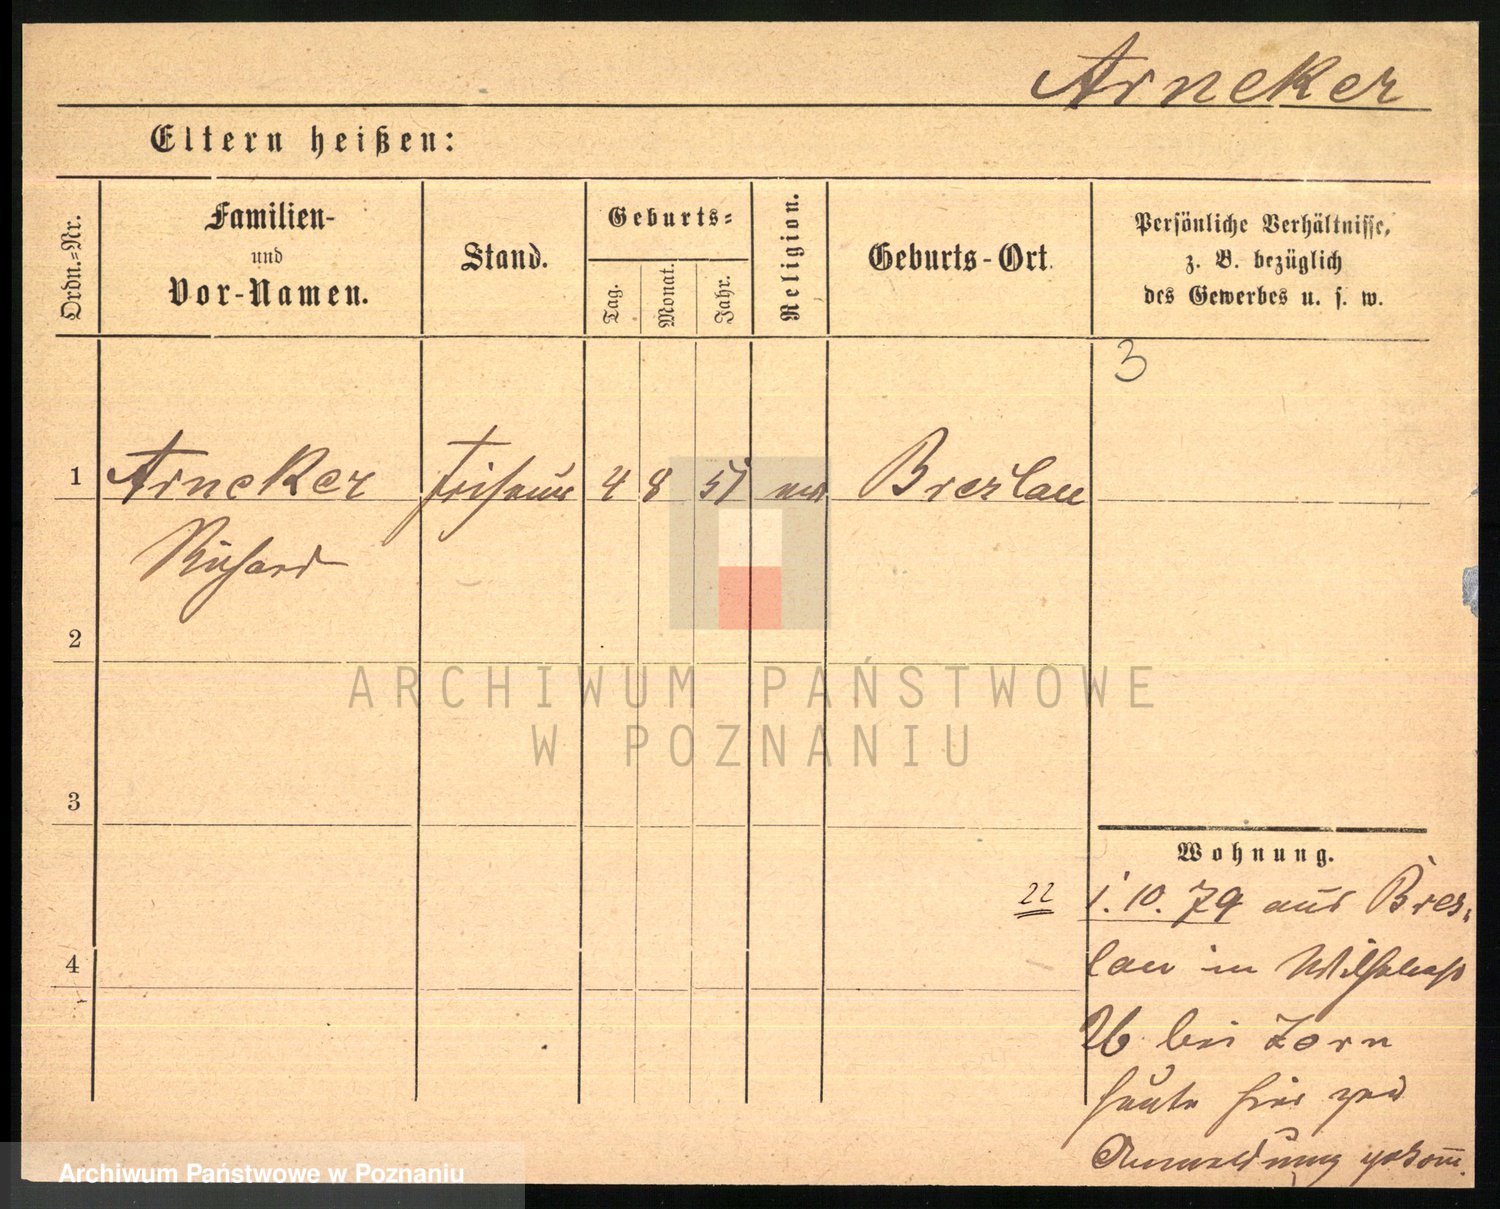 Arneker
Eltern heißen:
Ordn.-Nr.
Familien-
und
Vor-Namen.
Stand.
Geburts-
Tag.
Monat.
Jahr.
Religion.
Geburts-Ort.
Persönliche Verhältnisse,
z. B. bezüglich
des Gewerbes u. s. w.
3
1 Arneker Friseur 4 8 51 Breslau
Richard
2
ARCHIWUM PAŃSTWOWE
W POZNANIU
3
Wohnung.
22 1. 10. 79 aus Bres-
4 lau in Wilhelmst
26 bei Zorn
heute hier zur
Anmeldung gekom̅.
Archiwum Państwowe w Poznaniu